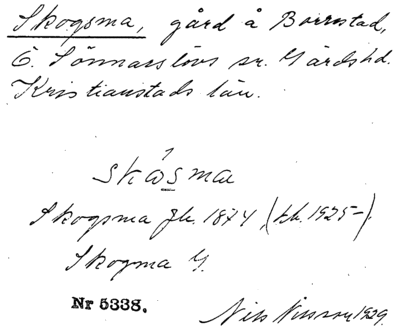 Skogsma, gård å Borrestad,
Ö. Sönnarslövs sn. Gärds hd.
Kristianstads län.
skåsma
Skogsma jb. 1874, (kb. 1925–),
Skogma G.
Nr 5338.
Nils Nilsson 1929.